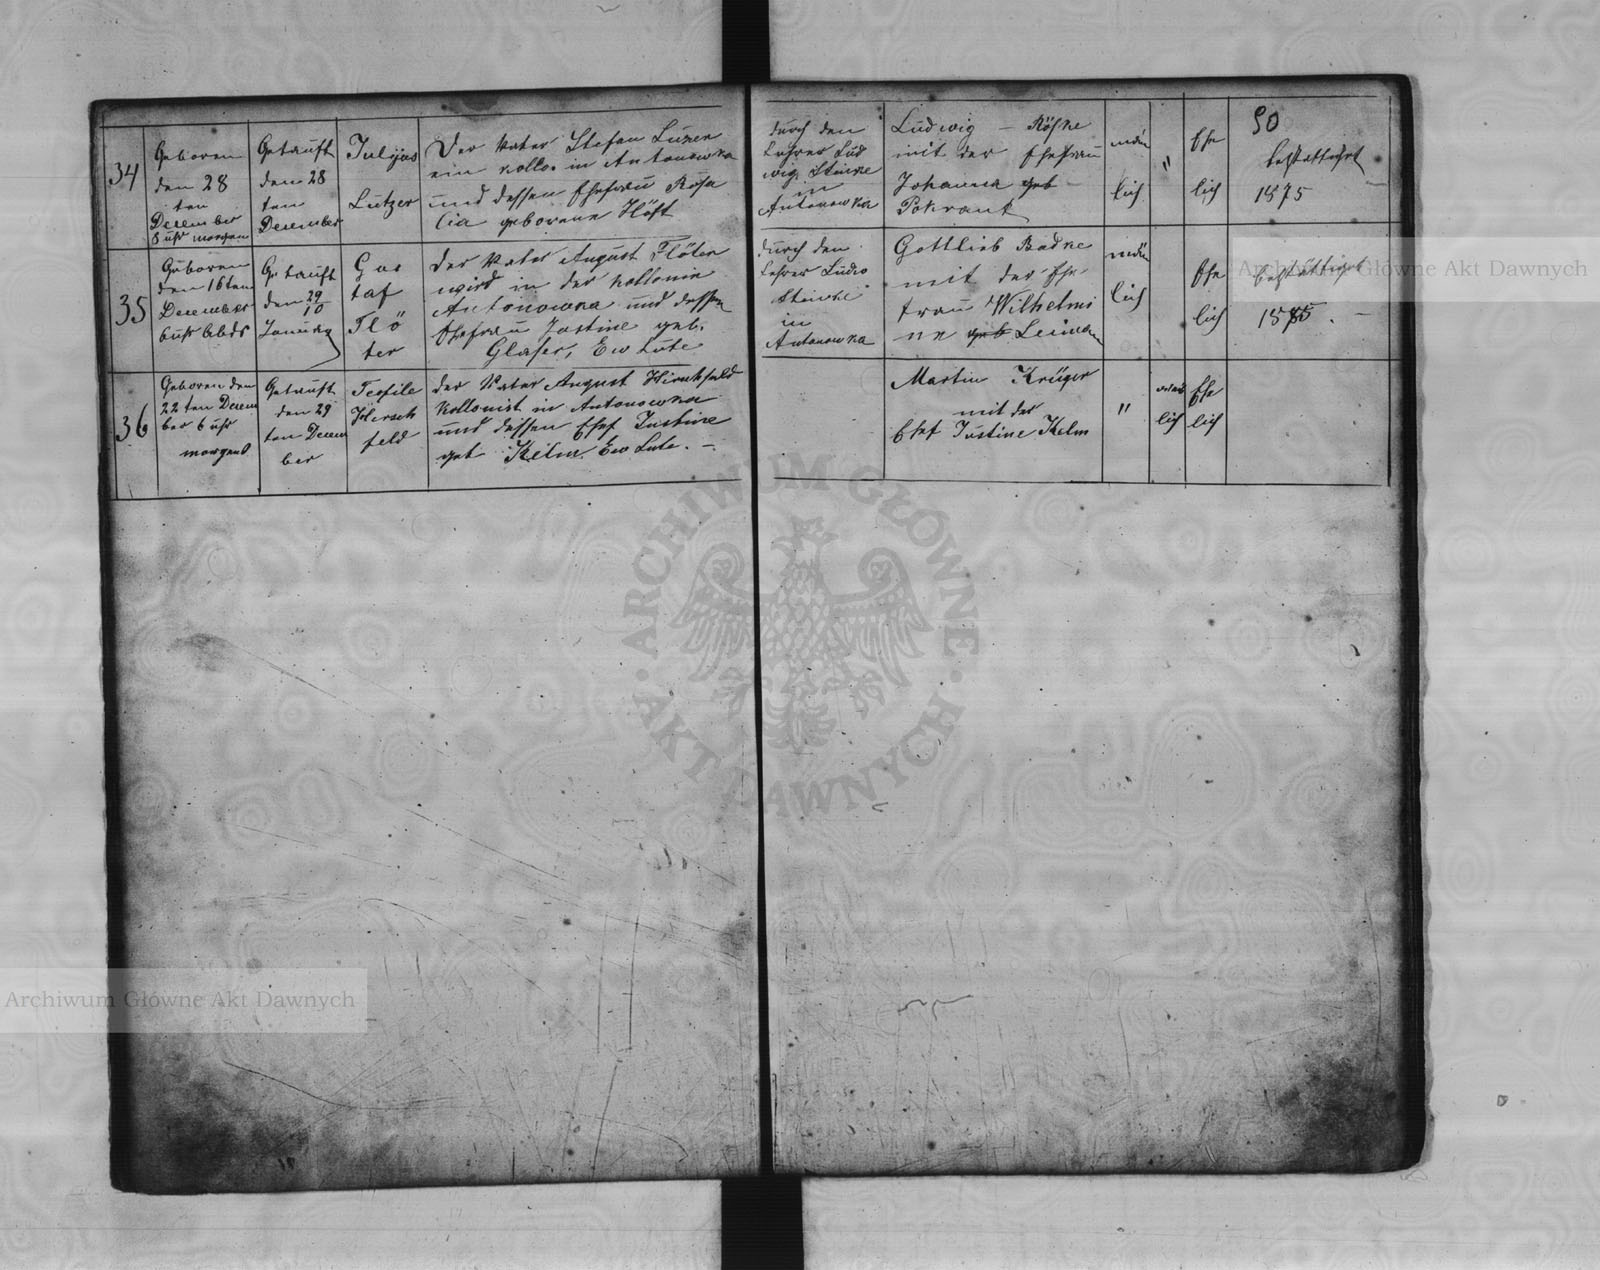 34
Geboren
den 28
ten
December
8 uhr morgen
Getauft
den 28
ten
December
Julijus
Lutzer
Der Vater Stefan Luzer
ein kollo. in Antonowka
und dessen Ehefrau Rosa
lia geborene Höft
durch den
Lehrer Lud
wig Steinke
in
Antonowka
Ludwig – Röske
mit der Ehefrau
Johanna geb
Pokrant
män
lich
"
Ehe
lich
50
1875
35
Geboren
den 16ten
December
6 uhr abds
Getauft
den 29/10
Januar
Gus
taf
Flö
ter
der Vater August Flöter
wird in der kollonie
Antonowka und dessen
Ehefrau Justine geb.
Glaser, Ew Lute
durch den
Lehrer Ludw
Steinke
in
Antonowka
Gottlieb Radke
mit der Ehe
frau Wilhelmi
ne geb Leiman
män
lich
Ehe
lich
bestättiget
1875. –
36
Geboren den
22ten Decem
ber 6 uhr
morgens
Getauft
den 29
ten Decem
ber
Teofile
Hirsch
feld
der Vater August Hirschfeld
Kollonist in Antonowka
und dessen Ehef Justine
geb Kelm. Ew Lute. –
Martin Krüger
mit der
Ehef Justine Kelm
"
lich
Ehe
lich
Archiwum Główne Akt Dawnych
· ARCHIWUM GŁÓWNE · AKT DAWNYCH
Archiwum Główne Akt Dawnych